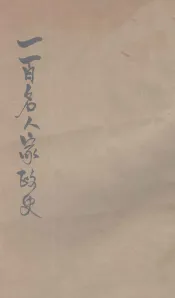 一百名人家政史